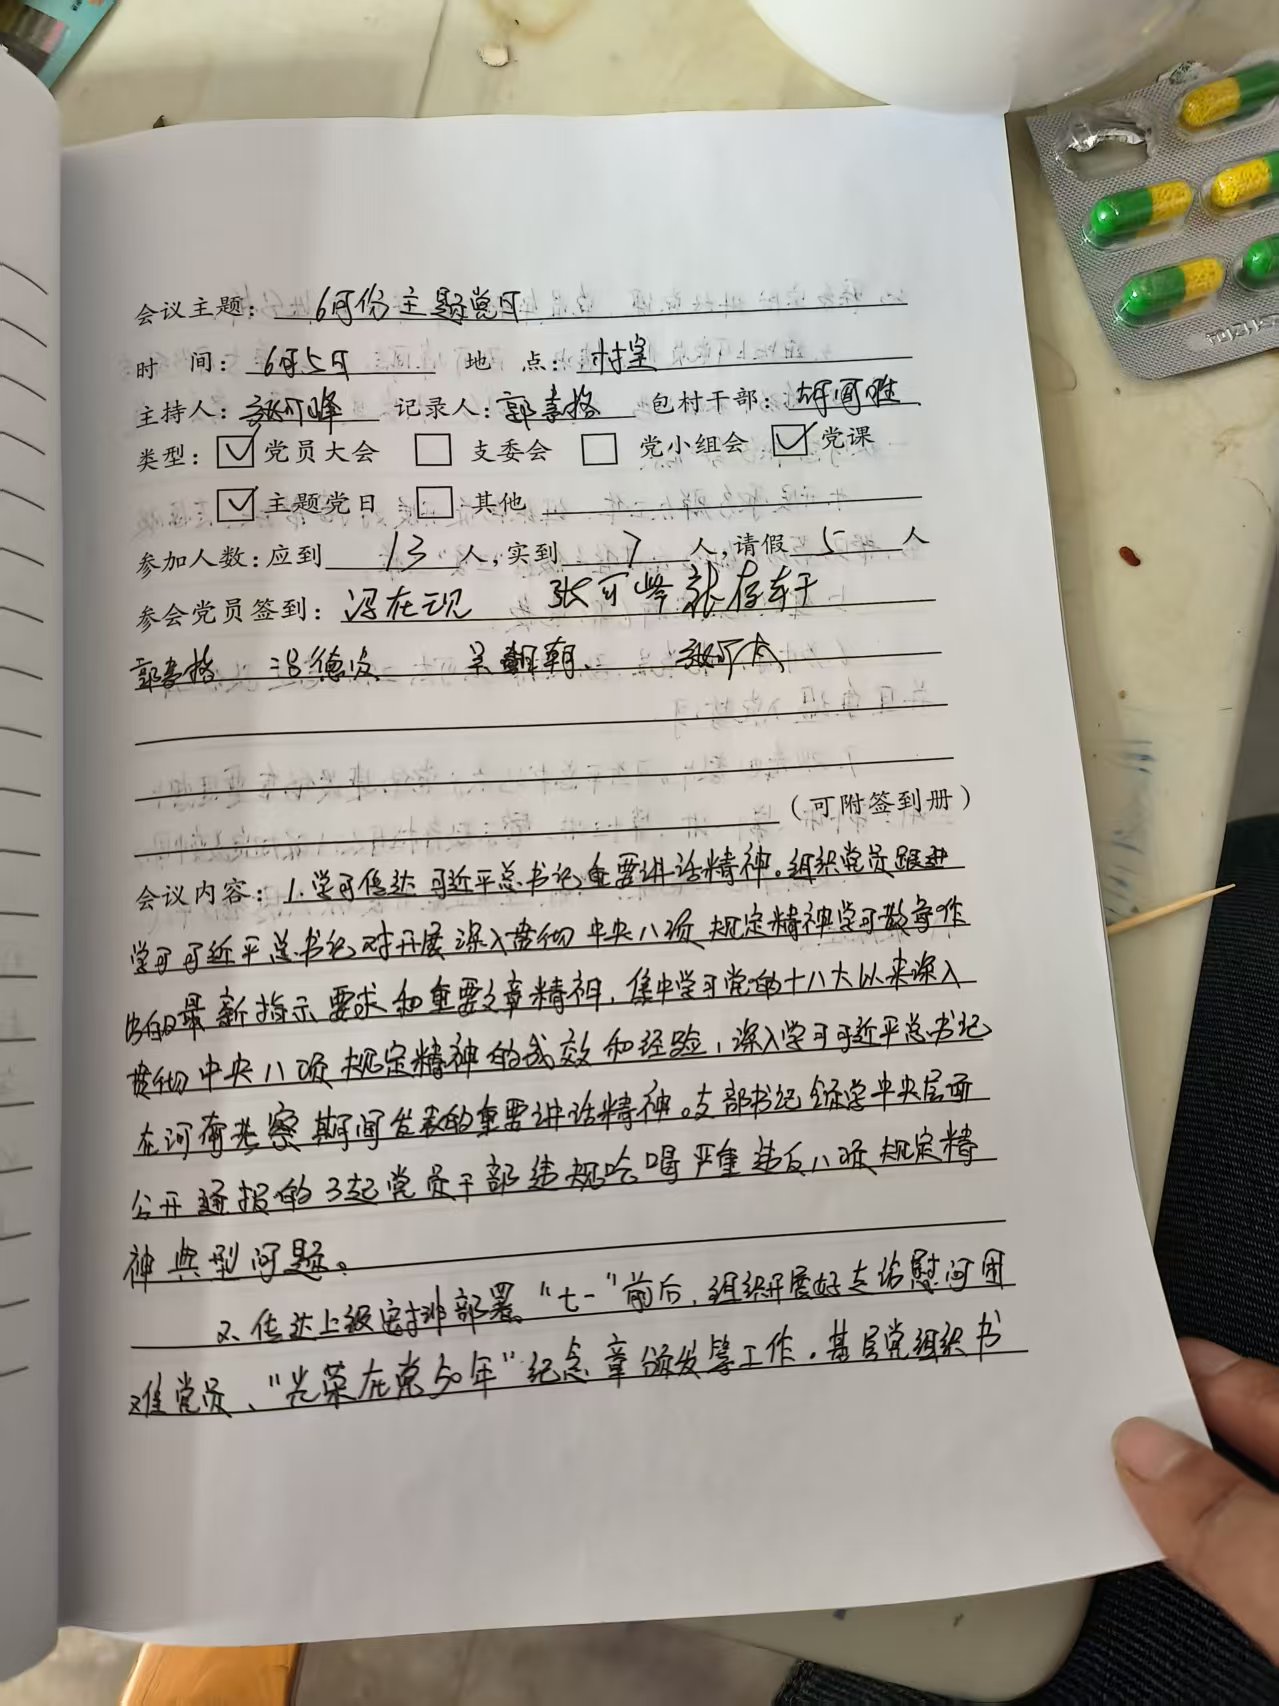 会议主题：6月份主题党日
时 间：6月5日 地 点：村室
主持人：张可峰 记录人：郭喜格 包村干部：
类型：☑党员大会 □ 支委会 □ 党小组会 ☑党课
☑主题党日 □ 其他
参加人数：应到 13 人，实到 7 人，请假 5 人
参会党员签到：冯在现 张可峰 张存轩
郭喜格 冯德俊 吴朝 张可
（可附签到册）
会议内容：1.学习传达习近平总书记重要讲话精神。组织党员跟进
学习习近平总书记对开展深入贯彻中央八项规定精神学习教育作
出的最新指示要求和重要文章精神，集中学习党的十八大以来深入
贯彻中央八项规定精神的成效和经验，深入学习习近平总书记
在河南考察期间发表的重要讲话精神。支部书记领学中央层面
公开通报的3起党员干部违规吃喝严重违反八项规定精
神典型问题。
2.传达上级安排部署。“七一”前后，组织开展好走访慰问困
难党员、“光荣在党50年”纪念章颁发等工作。基层党组织书